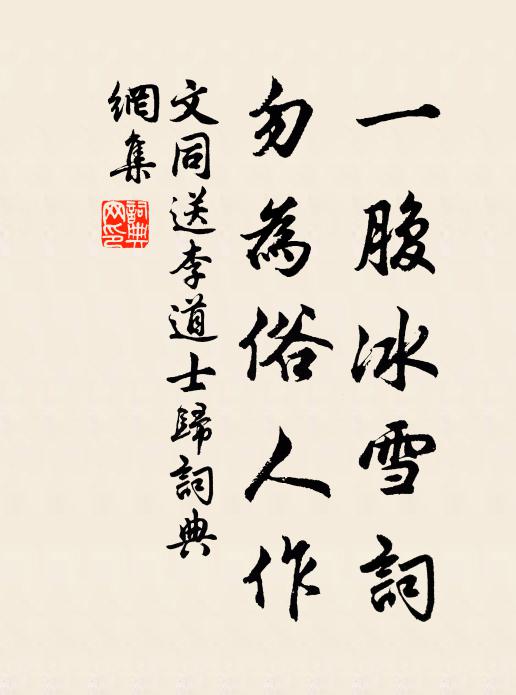 一腹冰雪詞
勿為俗人作
文同送李道士歸詞典
網集
詞典網印